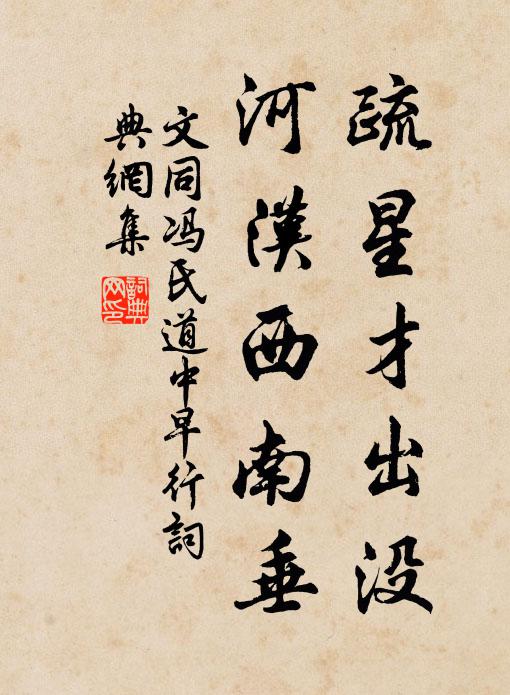 疏星才出没
河漢西南垂
文同冯氏道中早行詞
典網集
詞典
网印